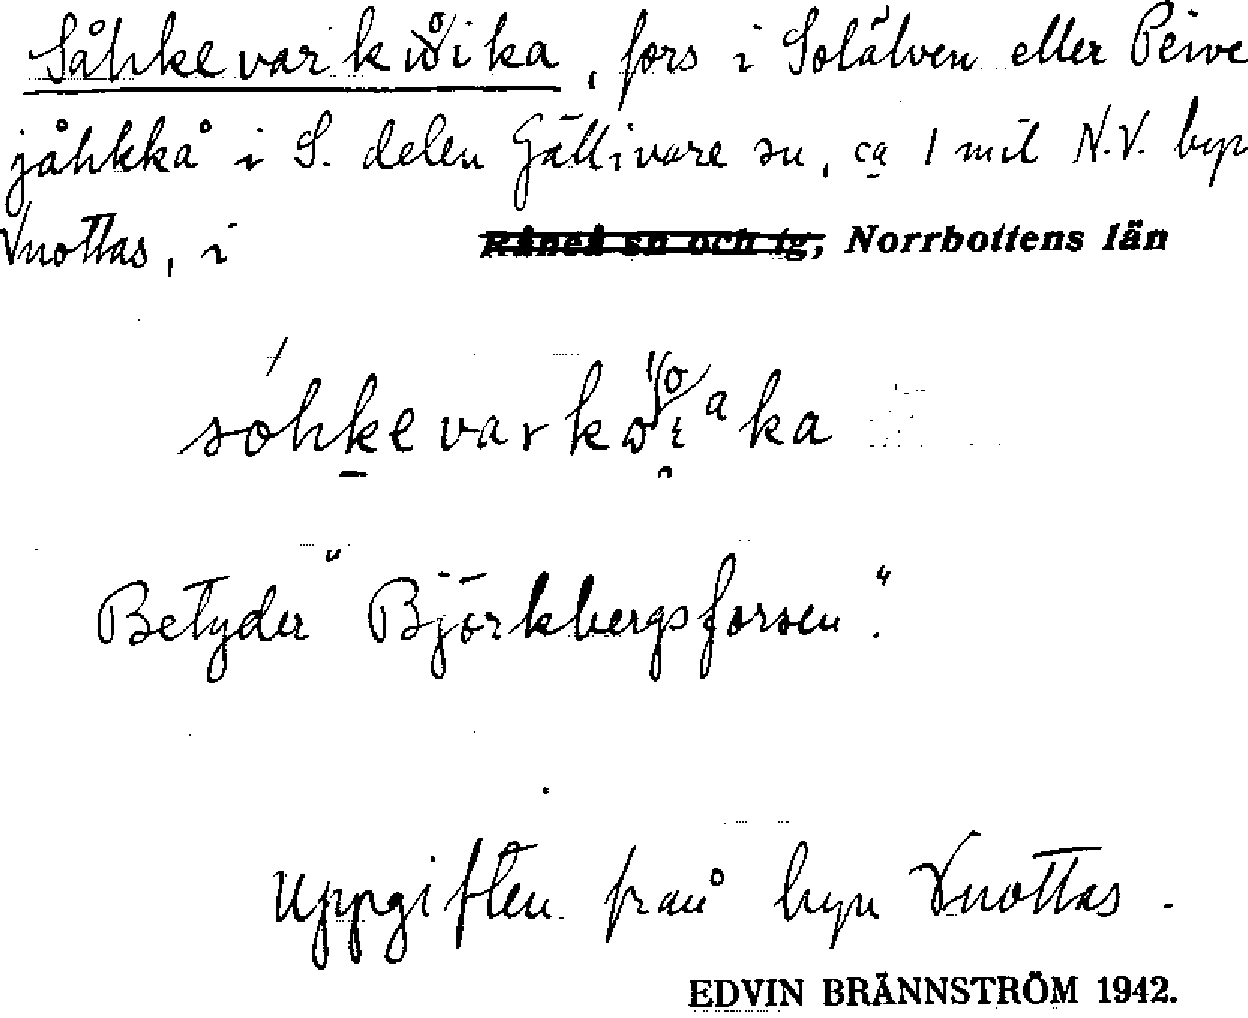 Såhkevarkåika, fors i Solälven eller Peive
jåhkkå i S. delen Gällivare sn, ca 1 mil N.V. byn
Vuottas, i Råneå sn och tg, Norrbottens län
Betyder "Björkbergsforsen".
Uppgiften från byn Vuottas.
EDVIN BRÄNNSTRÖM 1942.